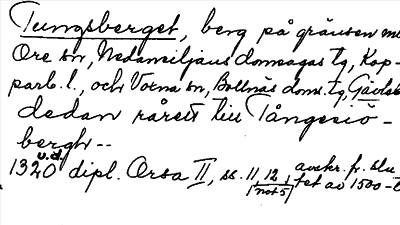 Tungsberget, berg på gränsen me
Ore sn, Nedansiljans domsagas tg, Kop-
parb. l., och Vorna sn, Bollnäs doms. tg, Gävleb
dedan rårätt till Tångesiö-
bergh--
1320 u.d. dipl. Orsa II, ss. 11, 12, avskr. fr. slu
not 5 tet av 1500-t